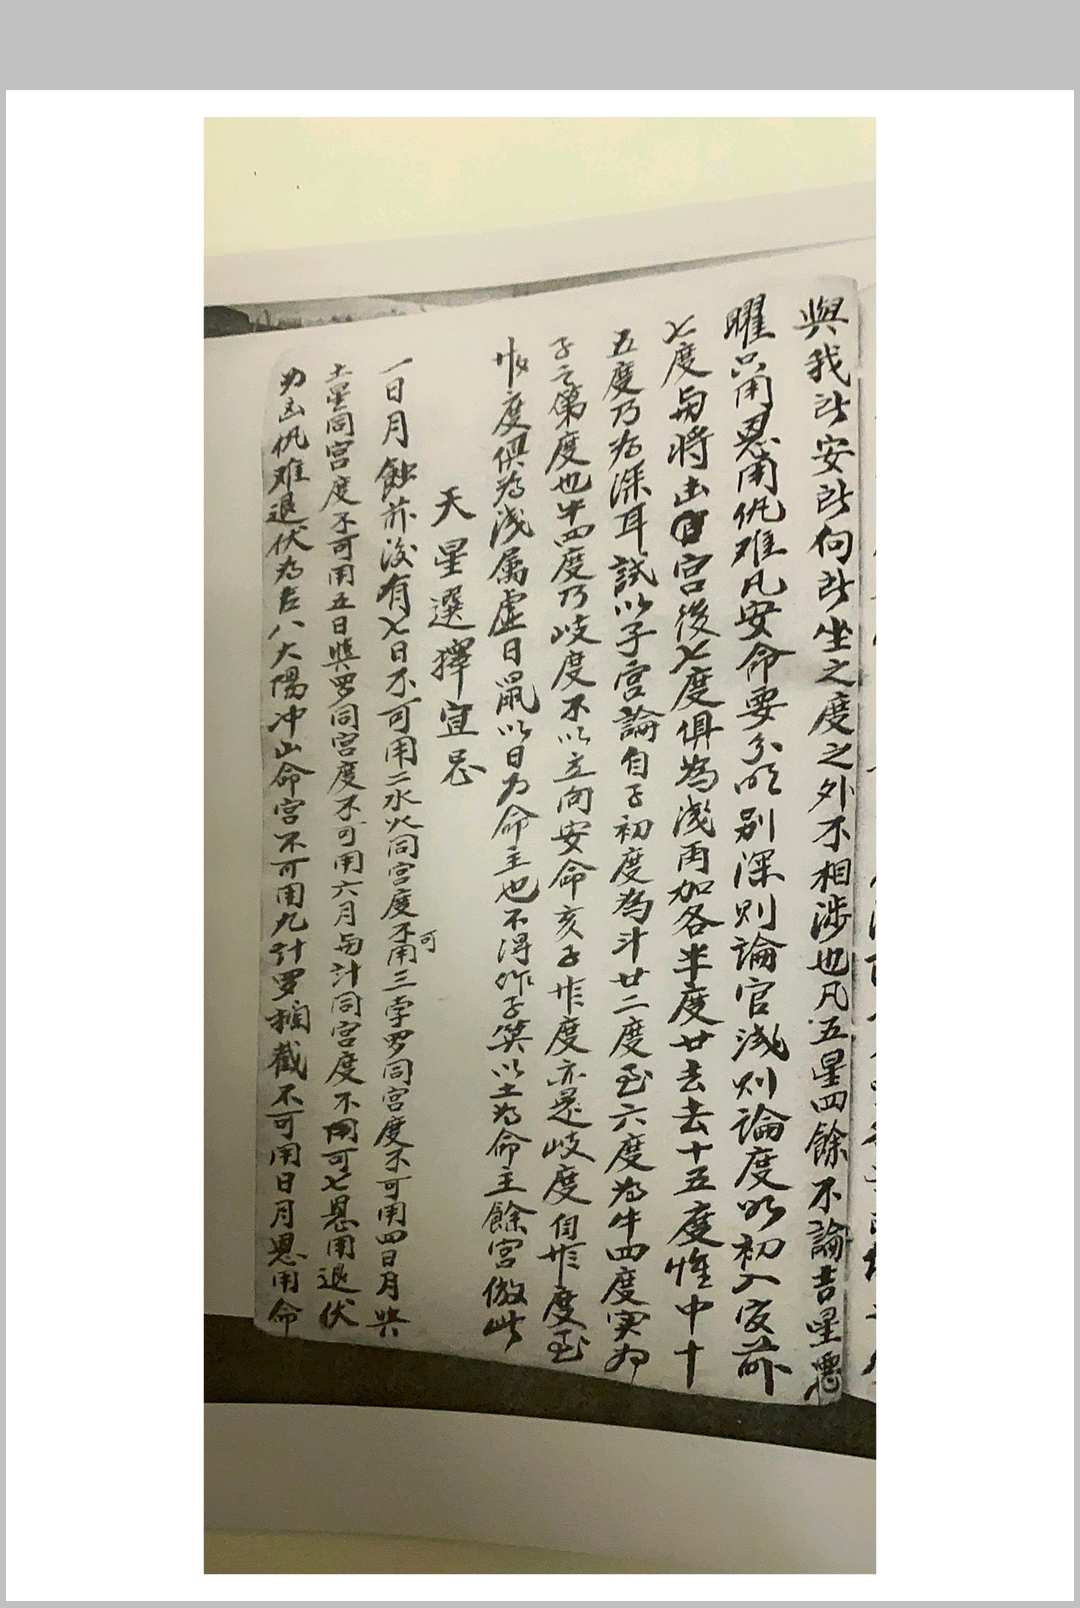 與我所安所向所坐之度之外不相涉也凡五星四餘不論吉星惡
曜只用恩用仇难凡安命要分明别深则論官浅则論度如初入宮前
七度与將出宮後七度俱為浅再加各半度廿去去十五度惟中十
五度乃為深耳試以子宮論自子初度為斗廿二度至六度為牛四度实为
子之第度也牛四度乃岐度不以立向安命亥子度亦是岐度自度至
度俱為浅属虚日鼠以日为命主也不得作子筭以土為命主餘宮倣此
天星選擇宜忌
一日月蝕前後有七日不可用二水火同宮度不可用三孛罗同宮度不可用四日月與
土星同宮度不可用五日與罗同宮度不可用六月与計同宮度不用可七恩用退伏
为凶仇难退伏為吉八太陽冲山命宮不可用九計罗攔截不可用日月恩用命